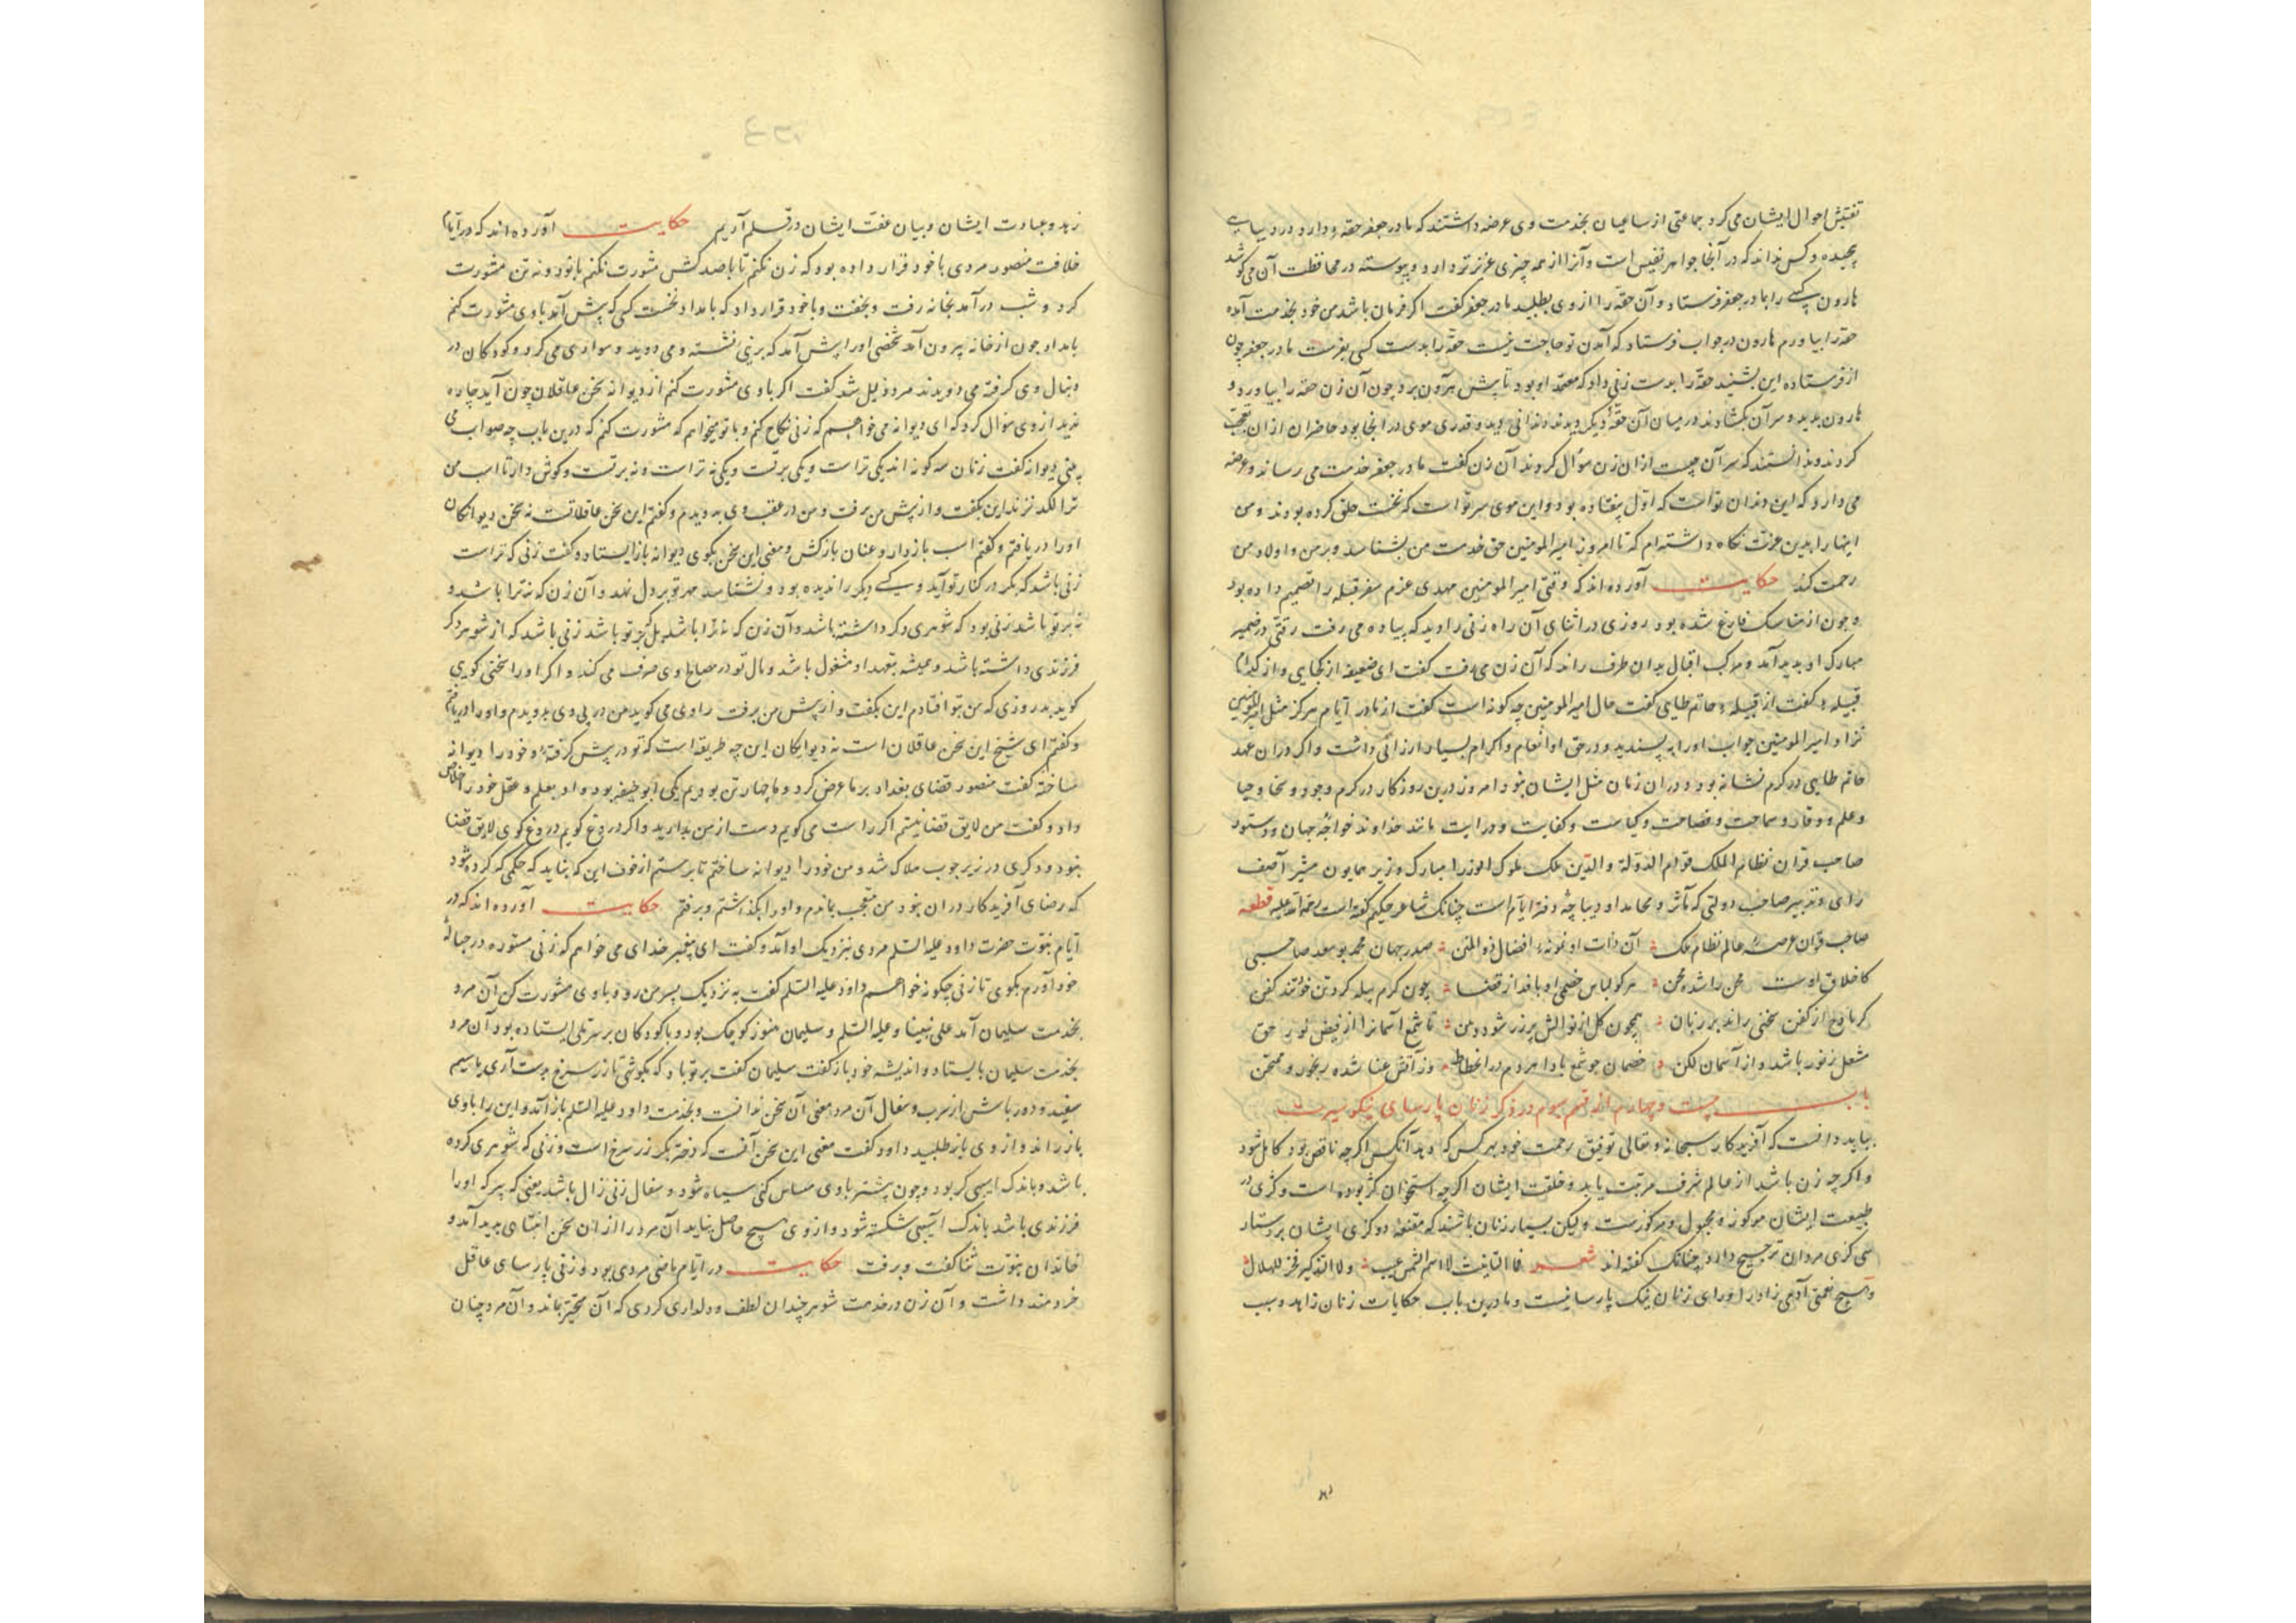 تفتیش احوال ایشان می کرد جماعتی از ساعیان بخدمت وی عرضه داشتند که مادر جعفر حقه دارد و در دیبایی
پیچیده و کس نداند که در آنجا جواهر نفیس است و آنرا از همه چیزی عزیزتر دارد و پیوسته در محافظت آن می کوشد
هارون کسی را بمادر جعفر فرستاد و آن حقه را از وی بطلبید مادر جعفر کفت اکر فرمان باشد من خود بخدمت آیم
حقه را بیاورم هارون در جواب فرستاد که آمدن تو حاجت نیست حقه را بدست کسی بفرست مادر جعفر چون
از فرستاده این بشنید حقه را بدست زنی داد که معتمد او بود تا پیش هارون برد چون آن زن حقه را بیاورد و
هارون بدید و سر آن بکشادند در میان آن حقه دیکر دیدند دندانی دید و قدری موی در آنجا بود حاضران از آن تعجب
کردند و ندانستند که سر آن چیست از آن زن سؤال کردند آن زن کفت مادر جعفر خدمت می رساند و عرضه
می دارد که این دندان تو است که اول بیفتاده بود و این موی سر تو است که نخست حلق کرده بودند و من
اینها را بدین عزت نکاه داشته ام که تا امروز امیر المومنین حق خدمت من بشناسد و بر من و اولاد من
رحمت کند حکایت آورده اند که وقتی امیر المومنین مهدی عزم سفر قبله را تصمیم داده بود
و چون از مناسک فارغ شده بود روزی در اثنای آن راه زنی را دید که پیاده می رفت رقتی در ضمیر
مبارک او پدید آمد و مرکب اقبال بدان طرف راند که آن زن می رفت کفت ای ضعیفه از کجایی و از کدام
قبیله کفت از قبیله حاتم طایی کفت حال امیر المومنین چه کونه است کفت از مادر ایام هرکز مثل امیر المومنین
نزاد امیر المومنین جواب او را پسندید و در حق او انعام و اکرام بسیار ارزانی داشت و اکر در آن عهد
حاتم طایی در کرم نشانه بود و در آن زمان مثل ایشان نبود امروز درین روزکار در کرم و جود و سخا و حیا
و علم و وقار و سماحت و فصاحت و کیاست و کفایت و درایت مانند خداوند خواجه جهان و دستور
صاحب قران نظام الملک قوام الدوله والدین ملک ملوک الوزرا مبارک وزیر همایون مشیر آصف
رای و تدبیر صاحب دولتی که مآثر و محامد او دیباچه دفتر ایام است چنانک شاعر حکیم کفته است رحمة الله علیه قطعه
صاحب قران عرصه عالم نظام ملک آن ذات او نمونه افضال ذو المنن صدر جهان محمد بو سعد صاحبی
کاخلاق اوست محن را شده محن هر کو لباس خصمی او بافد از قضا چون کرم پیله کرد تن خود را کفن
کر با دغ از کفن سخنی راند بر زبان همچون کل از نوالش پر زر شود دهن تا شمع آسمانرا از فیض نور حق
شعل ز نور باشد و از آسمان لکن خصمان چو شمع بادا هردم در انحطاط وز آتش عنا شده رنجور و ممتحن
باب بیست و چهارم از قسم سوم در ذکر زنان پارسای نیکو سیرت
بباید دانست که آفریدکار سبحانه و تعالی توفیق رحمت خود بهر کس که دهد آنکس اکرچه ناقص بود کامل شود
و اکر چه زن باشد از عالم شرف مرتبت یابد و خلقت ایشان اکرچه استخوان کژ بوده است و کژی در
طبیعت ایشان مرکوزست و لیکن بسیار زنان باشند که مقنعه و کژی ایشان بر دستار
کژی مردان ترجیح دارد چنانک کفته اند شعر فما التانیث لاسم الشمس عیب ولا التذکیر فخر للهلال
و هیچ نعمتی آدمی زاد را ورای زنان نیک پارسا نیست و ما درین باب حکایات زنان زاهد و سبب
زهد و عبادت ایشان و بیان عفت ایشان در قلم آریم حکایت آورده اند که در ایام
خلافت منصور مردی با خود قرار داده بود که زن نکنم تا با صد کس مشورت نکنم با نود و نه تن مشورت
کرد و شب درآمد بخانه رفت و بخفت و با خود قرار داد که بامداد نخست کسی که پیش آید با وی مشورت کنم
بامداد چون از خانه بیرون آمد شخصی او را پیش آمد که بر نیی نشسته و می دوید و سواری می کرد و کودکان در
دنبال وی کرفته می دویدند مرد ذلیل شد کفت اکر با وی مشورت کنم از دیوانه سخن عاقلان چون آید چاره
ندید از وی سؤال کرد که ای دیوانه می خواهم که زنی نکاح کنم و با تو میخواهم که مشورت کنم که درین باب چه صواب می
بینی دیوانه کفت زنان سه کونه اند یکی تراست و یکی بر تست و یکی نه تراست و نه بر تست و کوش دار تا اسب من
ترا لکد نزند این بکفت و از پیش من برفت و من در عقب وی بدویدم و کفتم این سخن عاقلانست نه سخن دیوانکان
او را دریافتم و کفتم اسب باز دار و عنان بازکش و معنی این سخن بکوی دیوانه باز ایستاد و کفت زنی که تراست
زنی باشد که بکر در کنار تو آید و کسی دیکر را ندیده بود و نشناسد مهر تو بر دل نهد و آن زن که نه ترا باشد و
نه بر تو باشد زنی بود که شوهری دکر داشته باشد و آن زن که نه ترا باشد بل که بر تو باشد زنی باشد که از شوهر دکر
فرزندی داشته باشد و همیشه بتعهد او مشغول باشد و مال تو در مصالح وی صرف می کند و اکر او را سختی کویی
کوید بد روزی که من بتو افتادم این بکفت و از پیش من برفت راوی می کوید من در پی وی بدویدم و او را دریافتم
و کفتم ای شیخ این سخن عاقلان است نه دیوانکان این چه طریقه است که تو در پیش کرفته و خود را دیوانه
ساخته کفت منصور قضای بغداد بر ما عرض کرد و ما چهار تن بودیم یکی ابو حنیفه بود و او بعلم و عقل خود را خلاص
داد و کفت من لایق قضا نیستم اکر راست می کویم دست از من بدارید و اکر دروغ کویم دروغ کوی لایق قضا
نبود و دکری در زیر چوب هلاک شد و من خود را دیوانه ساختم تا برستم از خوف این که نباید که حکمی کرده شود
که رضای آفریدکار در آن نبود من متعجب بماندم و او را بکذاشتم و برفتم حکایت آورده اند که در
ایام نبوت حضرت داود علیه السلم مردی نزدیک او آمد و کفت ای پیغمبر خدای می خواهم که زنی مستوره در حباله
خود آورم بکوی تا زنی چکونه خواهم داود علیه السلم کفت به نزدیک پسر من رو و با وی مشورت کن آن مرد
بخدمت سلیمان آمد علی نبینا و علیه السلم و سلیمان هنوز کوچک بود و با کودکان بر سر تلی ایستاده بود آن مرد
بخدمت سلیمان بایستاد و اندیشه خود باز کفت سلیمان کفت بر تو باد که بکوشی تا زر سرخ بدست آری یا سیم
سفید و دور باش از سرب و سفال آن مرد معنی آن سخن ندانست و بخدمت داود علیه السلم باز آمد و این را با وی
باز راند و از وی باز طلبید داود کفت معنی این سخن آنست که دختر بکر زر سرخ است و زنی که شوهری کرده
باشد و باندک اسپی کر بود و چون بیشتر با وی مساس کنی سیاه شود و سفال زنی زال باشد یعنی که پیر که او را
فرزندی باشد باندک آسیبی شکسته شود و از وی هیچ حاصل نیاید آن مرد را از آن سخن انتباهی پدید آمد و
خاندان نبوت ثنا کفت و برفت حکایت در ایام ماضی مردی بود و زنی پارسای عاقل
خردمند داشت و آن زن در خدمت شوهر چندان لطف و دلداری کردی که آن متحیر بماند و آن مرد چنان